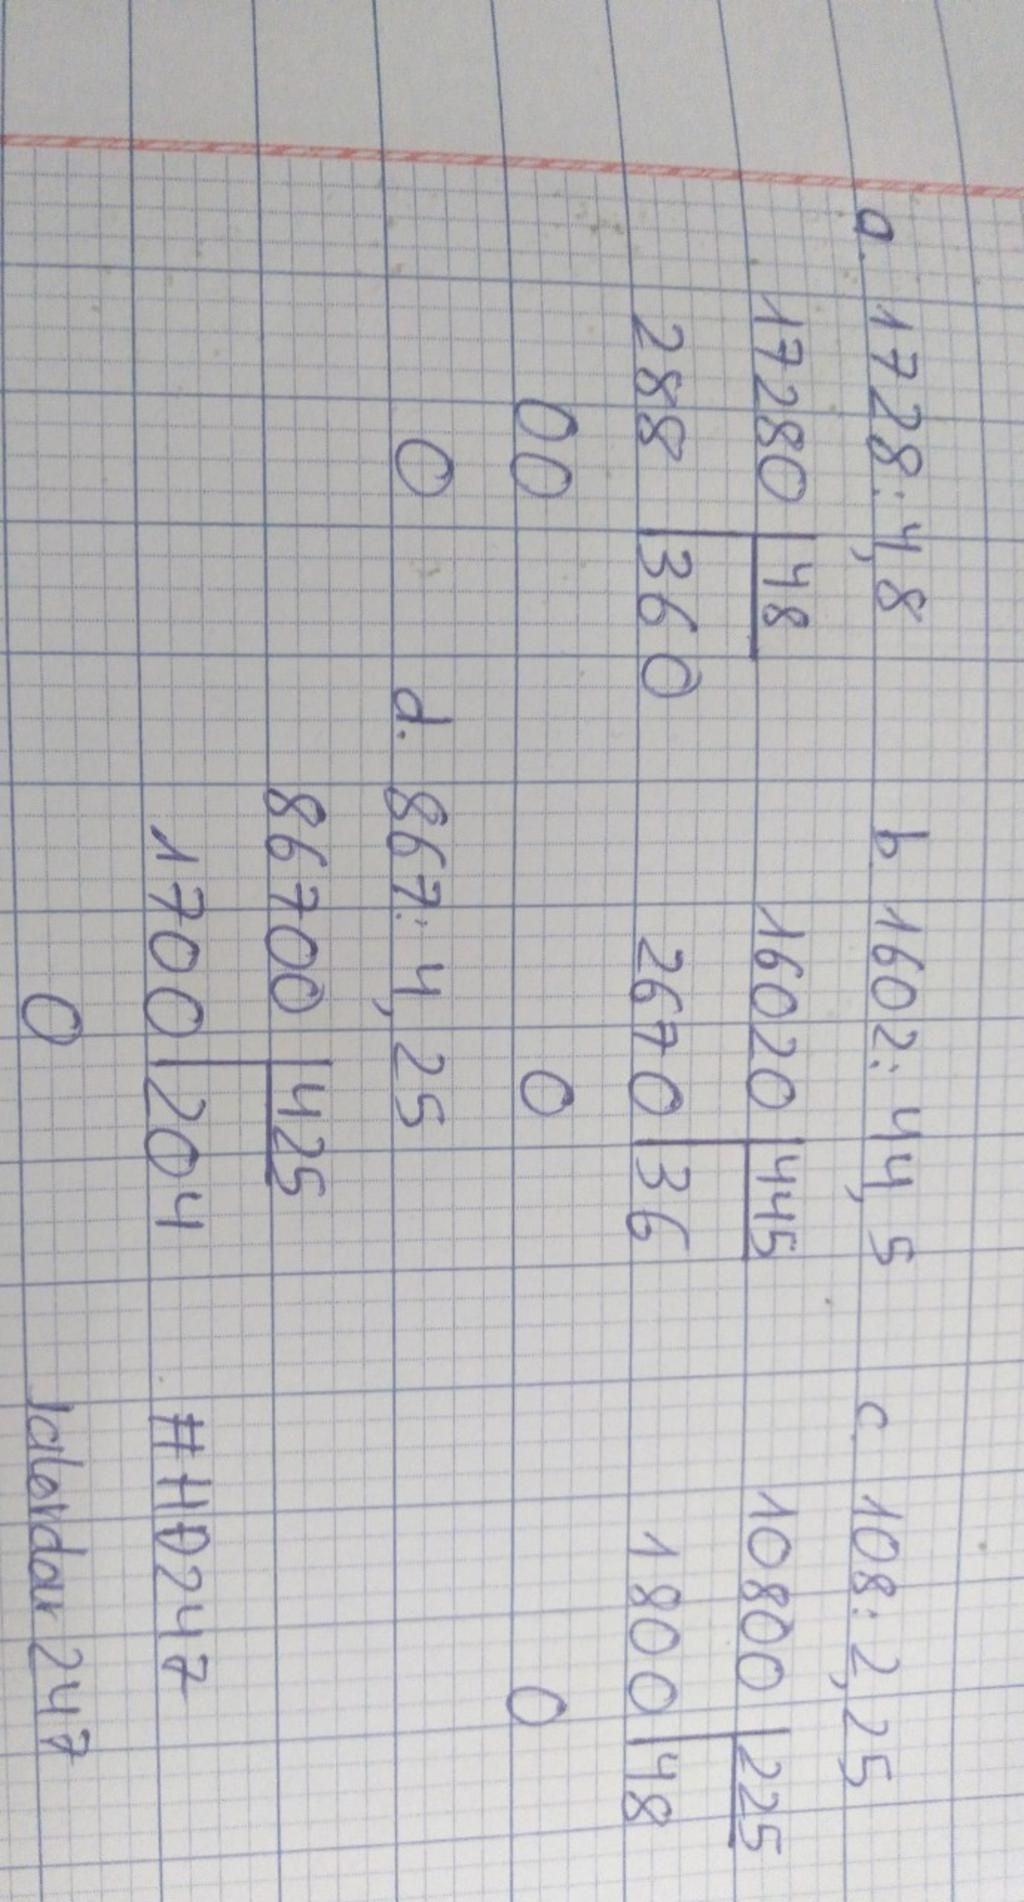 a. 1728:4,8
17280 48
288 360
00
0
b 1602:44,5
16020 445
2670 36
0
c. 108:2,25
10800 225
1800 48
0
d. 867:4,25
86700 425
1700 204
0
#HD247